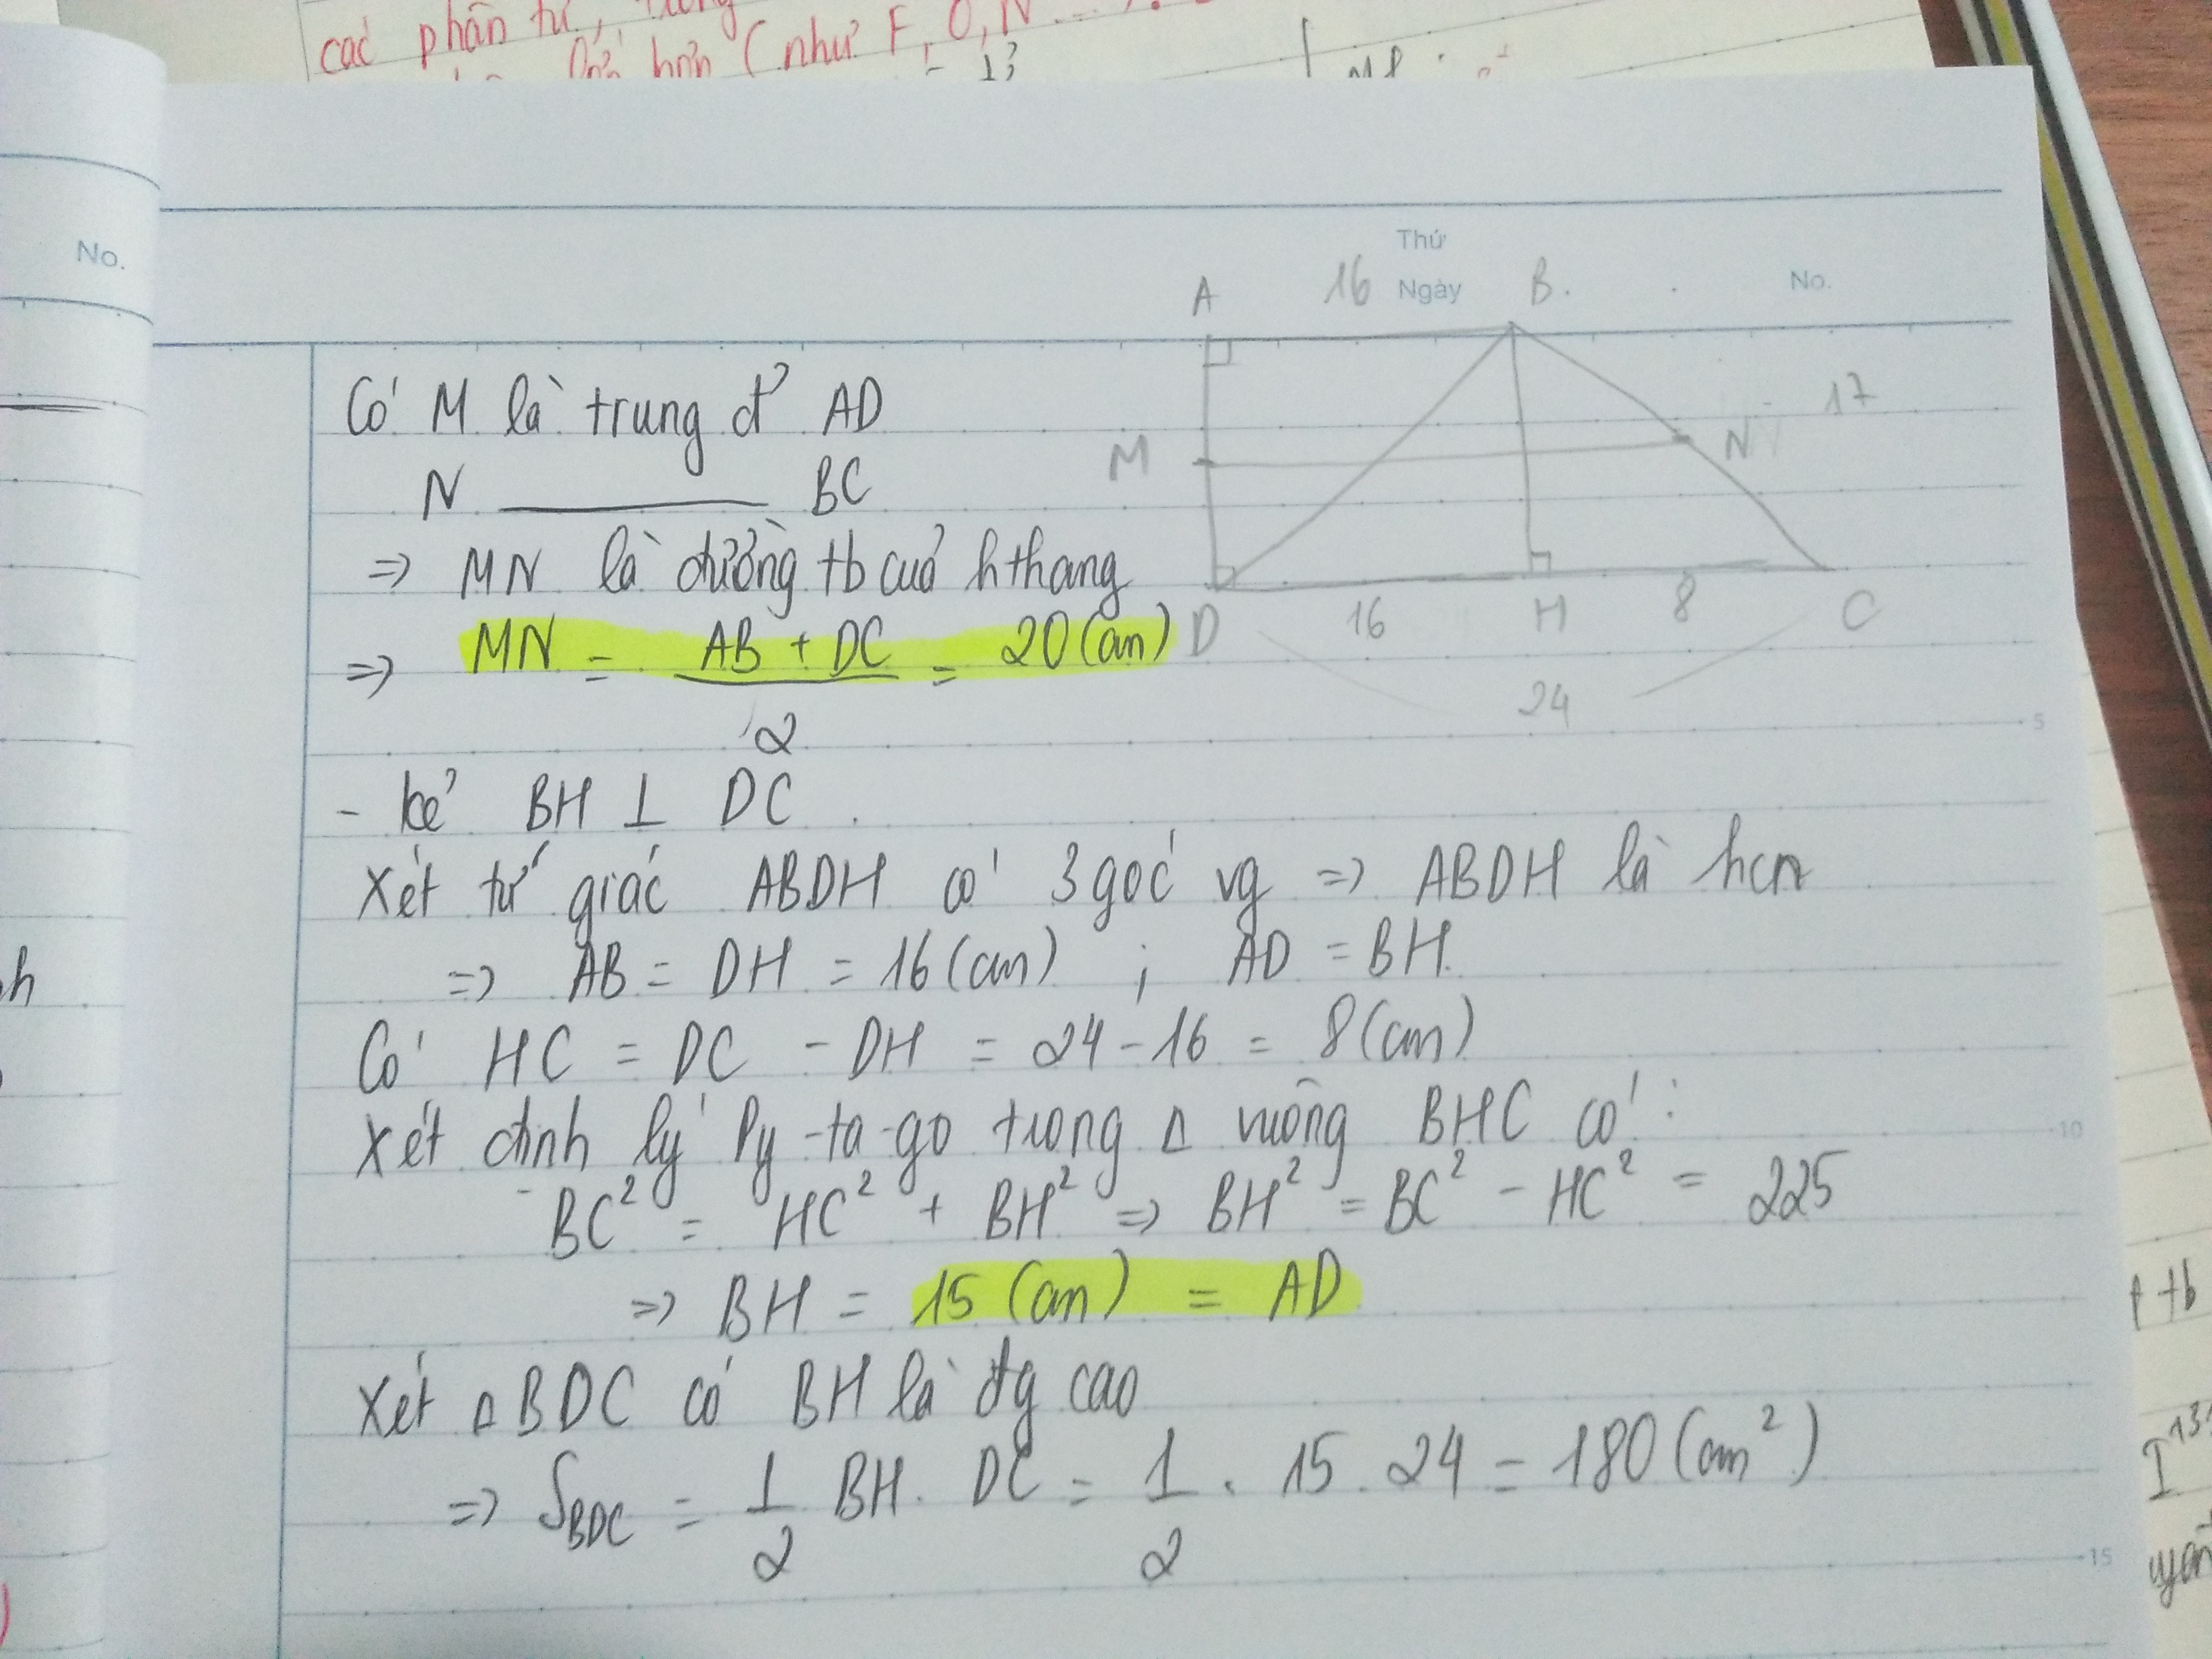 các phân tử,
hơn (như F, O, N
13
No.
Thứ
Ngày
No.
A 16 B.
17
M N
D 16 H 8 C
24
Có M là trung đ' AD
N ———— BC
=> MN là đường tb của hthang
=> MN = AB + DC / 2 = 20 (cm)
- kẻ BH ⊥ DC
Xét tứ giác ABDH có 3 góc vg => ABDH là hcn
=> AB = DH = 16 (cm) ; AD = BH.
Có HC = DC - DH = 24 - 16 = 8 (cm)
Xét định lý Py-ta-go trong Δ vuông BHC có:
BC² = HC² + BH² => BH² = BC² - HC² = 225
=> BH = 15 (cm) = AD
Xét Δ BDC có BH là đg cao
=> S_BDC = 1/2 BH. DC = 1/2 . 15. 24 = 180 (cm²)
5
10
15
h
tb